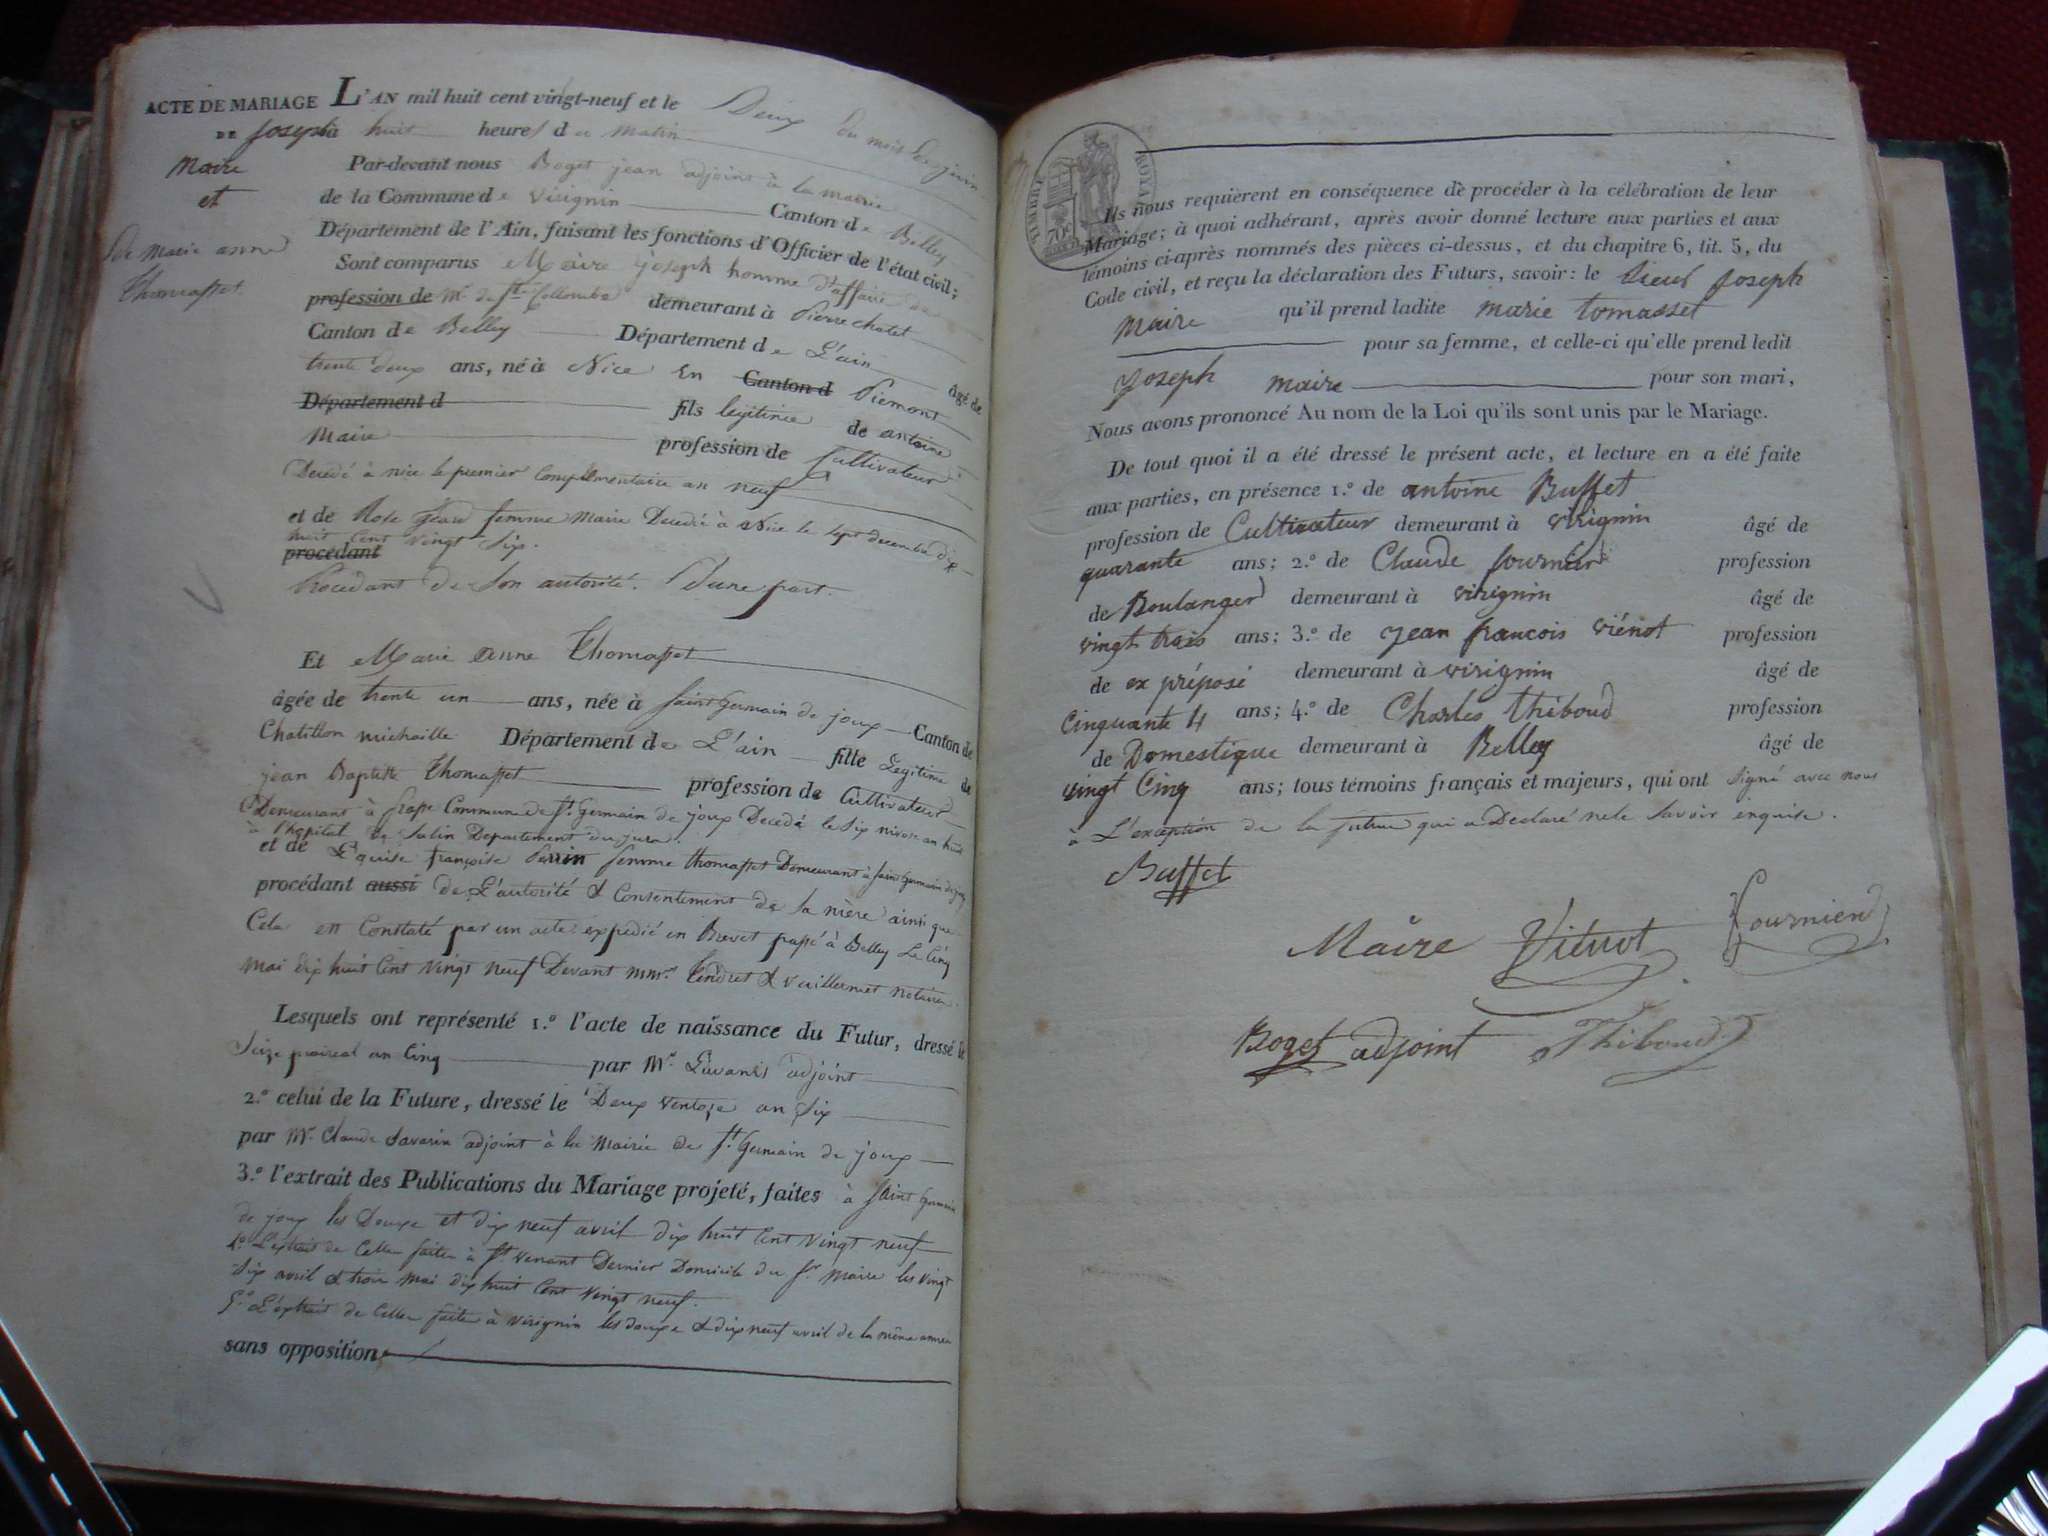 ACTE DE MARIAGE
DE Joseph
Maire
et
de Marie anne
Thomasset
L'AN mil huit cent vingt-neuf et le Deux du mois de juin
à huit heures du matin
Par-devant nous Boget jean adjoint à la mairie
de la Commune de virignin Canton de Belley
Département de l'Ain, faisant les fonctions d'Officier de l'état civil;
Sont comparus Maire joseph homme d'affaire de
profession de Mr de Ste Collombe demeurant à Pierre chatel
Canton de Belley Département de L'ain âgé de
trente deux ans, né à Nice En Canton d Piemont
Département d fils legitime de antoine
Maire profession de Cultivateur
Decedé à nice le premier Complementaire an neuf
et de Rose femme Maire Decedée à Nice le sept decembre dix
huit cent vingt six.
procédant
Procedant de Son autorité. D'une part.
Et Marie Anne Thomasset
âgée de trente un ans, née à Saint Germain de joux Canton de
Chatillon michaille Département de L'ain fille Legitime de
jean Baptiste Thomasset profession de Cultivateur
Demeurant à Commune de St. Germain de joux Decedé le Six nivose an huit
à l'hopital de Salin Departement du jura.
et de Louise françoise Perrin femme thomasset Demeurant à Saint Germain de joux
procédant aussi de L'autorité & Consentement de Sa mère ainsi que
Cela est Constaté par un acte expedié en Brevet passé à Belley Le Cinq
mai dix huit Cent vingt neuf Devant mmrs & Vuillermet notaires.
Lesquels ont représenté 1.º l'acte de naissance du Futur, dressé le
Seize prairial an Cinq par Mr. adjoint
2.º celui de la Future, dressé le Deux ventose an Six
par Mr. Claude Savarin adjoint à la Mairie de St. Germain de joux
3.º l'extrait des Publications du Mariage projeté, faites à Saint Germain
de joux les Douze et dix neuf avril dix huit Cent vingt neuf
4.º L'extrait de Celles faites à St. venant Dernier Domicile du Sr. Maire les vingt
Six avril & trois mai dix huit Cent vingt neuf.
5.º L'extrait de Celles faites à virignin les douze & dix neuf avril de la même année
sans opposition
TIMBRE ROYAL
70c
Ils nous requièrent en conséquence de procéder à la célébration de leur
Mariage; à quoi adhérant, après avoir donné lecture aux parties et aux
témoins ci-après nommés des pièces ci-dessus, et du chapitre 6, tit. 5, du
Code civil, et reçu la déclaration des Futurs, savoir: le Sieur Joseph
maire qu'il prend ladite marie tomasset
pour sa femme, et celle-ci qu'elle prend ledit
Joseph maire pour son mari,
Nous avons prononcé Au nom de la Loi qu'ils sont unis par le Mariage.
De tout quoi il a été dressé le présent acte, et lecture en a été faite
aux parties, en présence 1.º de antoine Buffet
profession de Cultivateur demeurant à virignin âgé de
quarante ans; 2.º de Claude fournier profession
de Boulanger demeurant à virignin âgé de
vingt trois ans; 3.º de jean francois viénot profession
de ex préposé demeurant à virignin âgé de
Cinquante 4 ans; 4.º de Charles thiboud profession
de Domestique demeurant à Belley âgé de
vingt Cinq ans; tous témoins français et majeurs, qui ont Signé avec nous
à L'exception de la future qui a Declaré ne le Savoir enquise.
Buffet
Maire Viénot Fournier
Boget adjoint Thiboud